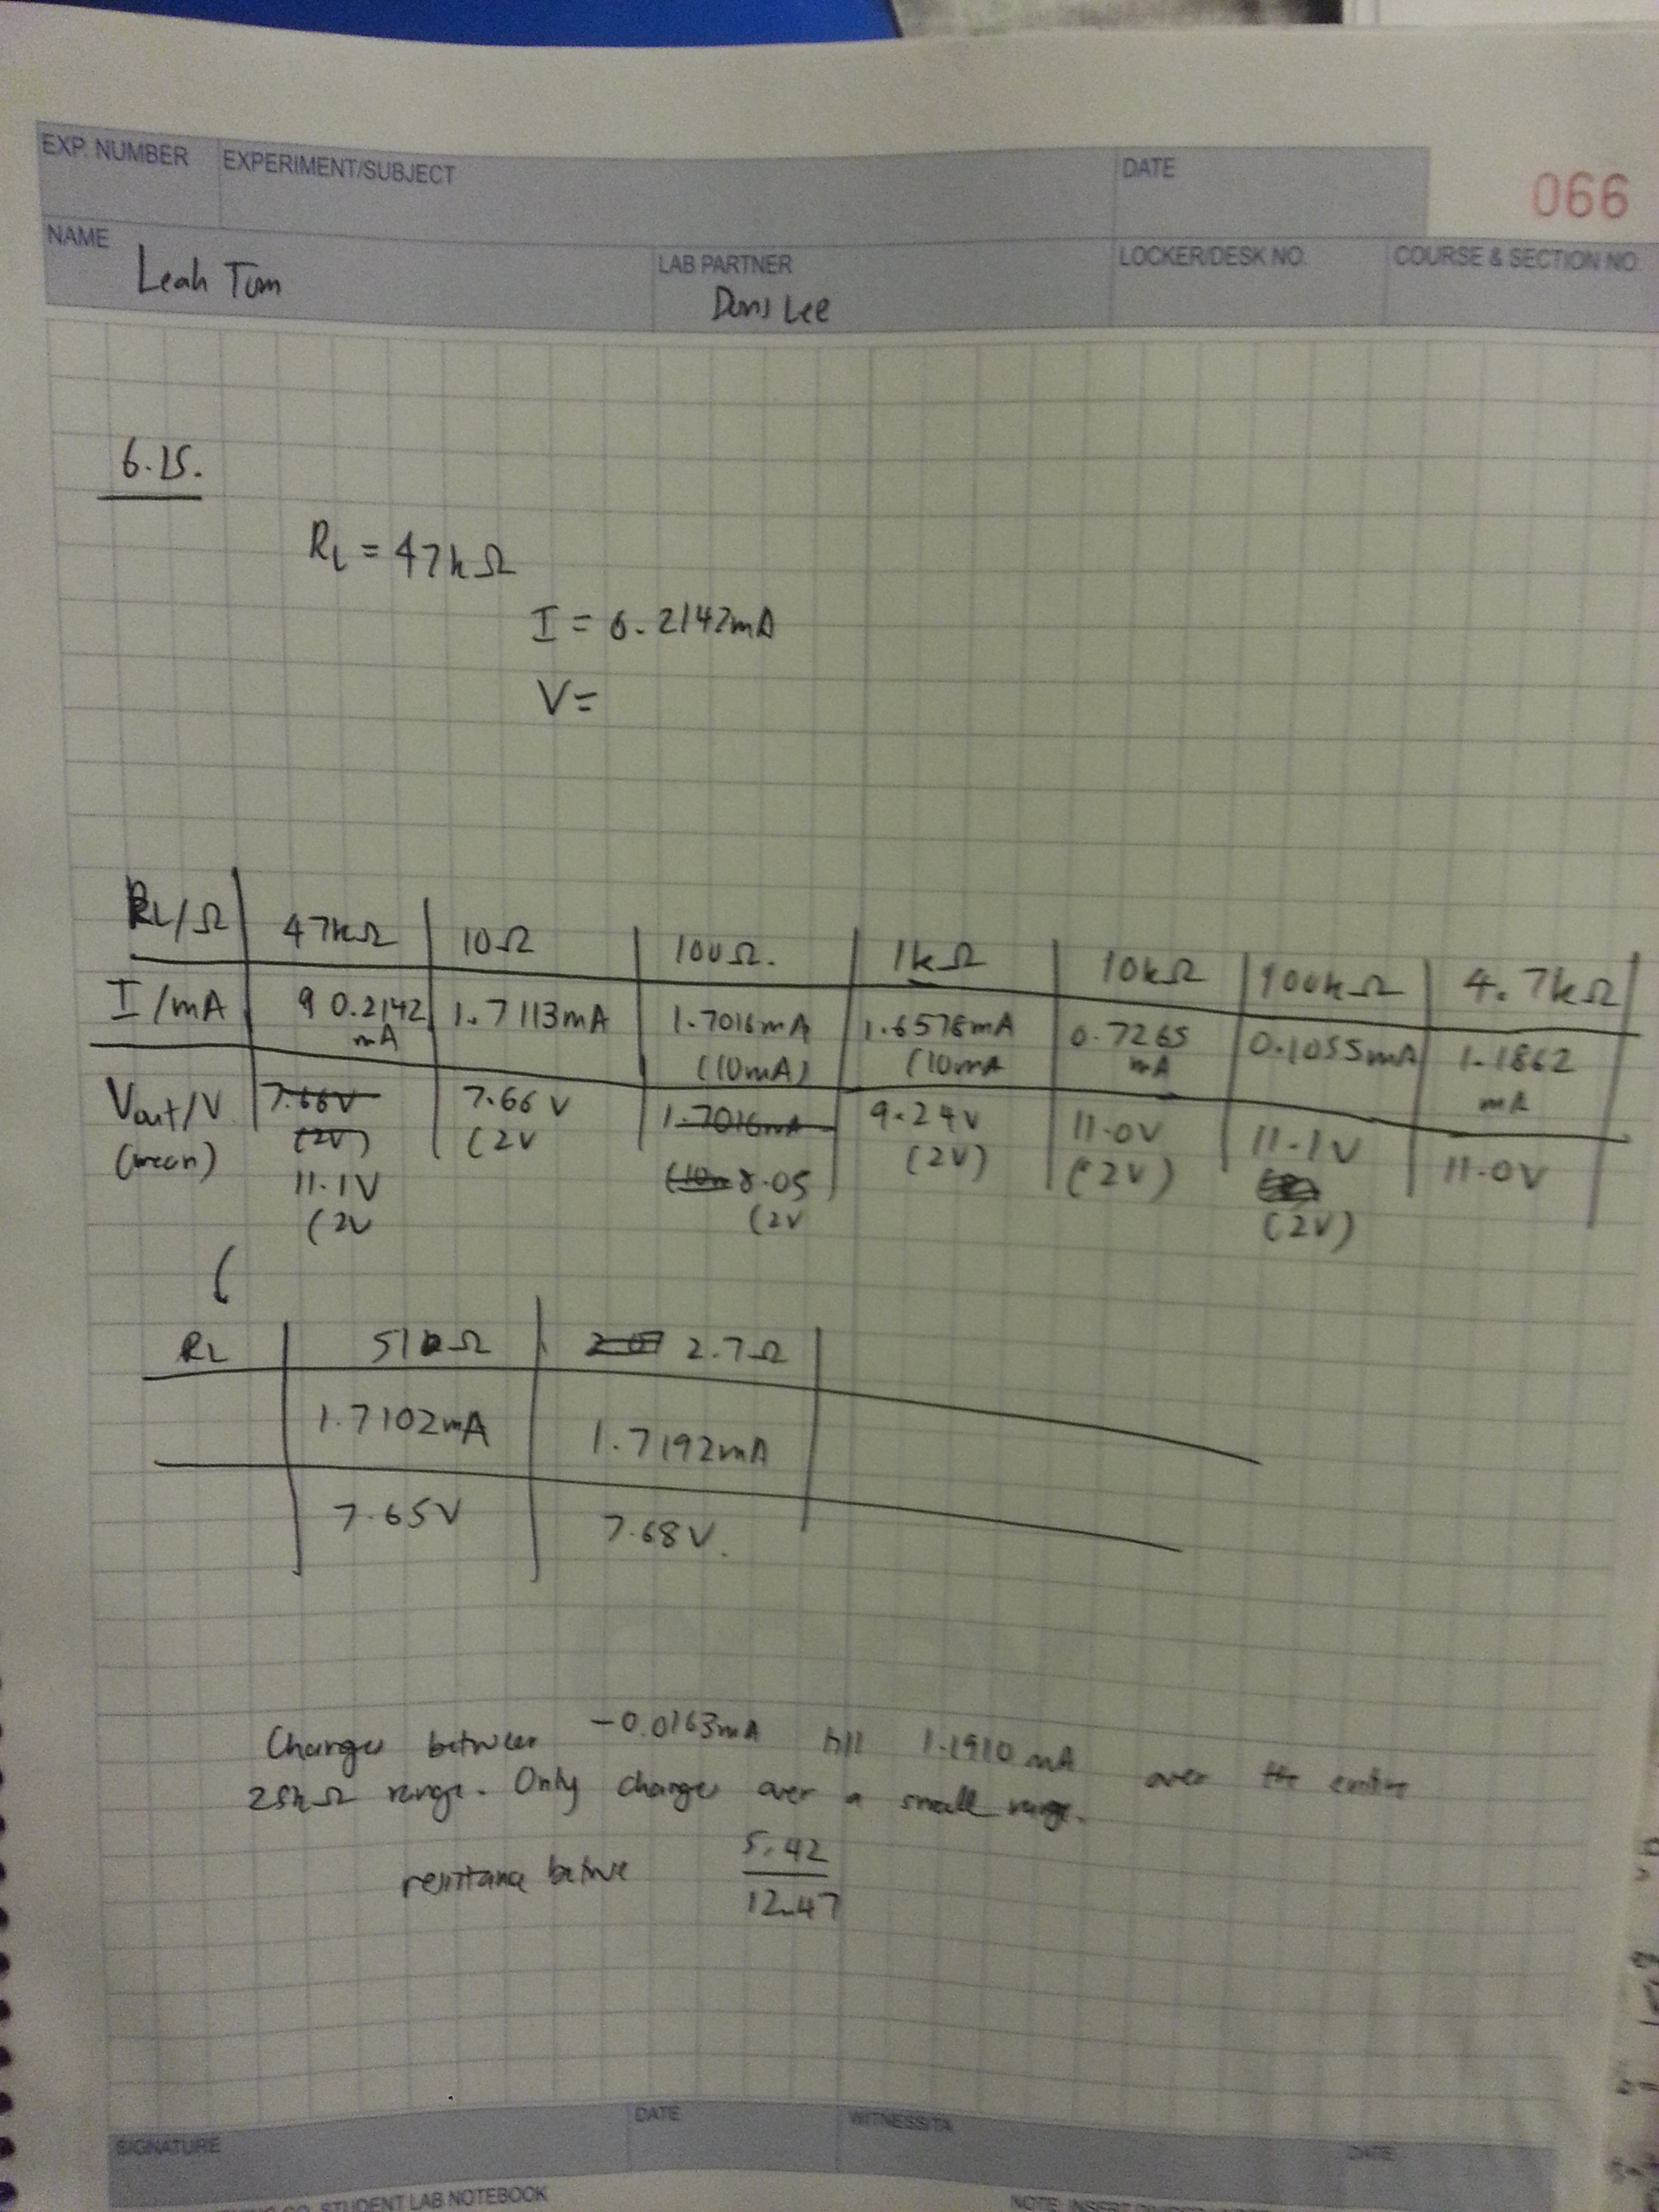 EXP. NUMBER EXPERIMENT/SUBJECT DATE 066
NAME LAB PARTNER LOCKER/DESK NO. COURSE & SECTION NO.
Leah Tom Doris Lee
6.15.
RL = 47kΩ
I = 0.2142mA
V=
RL/Ω 47kΩ 10Ω 100Ω. 1kΩ 10kΩ 100kΩ 4.7kΩ
I/mA 0.2142 mA 1.7113mA 1.7016mA (10mA) 1.6578mA (10mA 0.7265 mA 0.1055mA 1.1862 mA
Vout/V (mean) 7.66V (2V) 11.1V (2V 7.66V (2V 1.7016mA 8.05 (2V 9.24V (2V) 11.0V (2V) 11.1V (2V) 11.0V
RL 51Ω 2.7Ω
1.7102mA 1.7192mA
7.65V 7.68V.
Changes between -0.0163mA till 1.1910mA over the entire
25kΩ range. Only changes over a small range.
resistance 5.42
12.47
SIGNATURE DATE WITNESS/TA DATE
CO. STUDENT LAB NOTEBOOK NOTE: INSERT DIVIDER UNDER